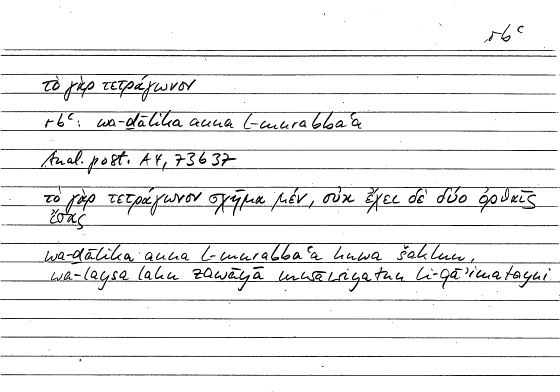 rbʿ
τὸ γὰρ τετράγωνον
rbʿ: wa-ḏālika anna l-murabbaʿa
Anal. post. A4, 73b37
τὸ γὰρ τετράγωνον σχῆμα μέν, οὐκ ἔχει δὲ δύο ὀρθαῖς
ἴσας
wa-ḏālika anna l-murabbaʿa huwa šaklun,
wa-laysa lahu zawāyā musāwiyatun li-qāʾimatayni